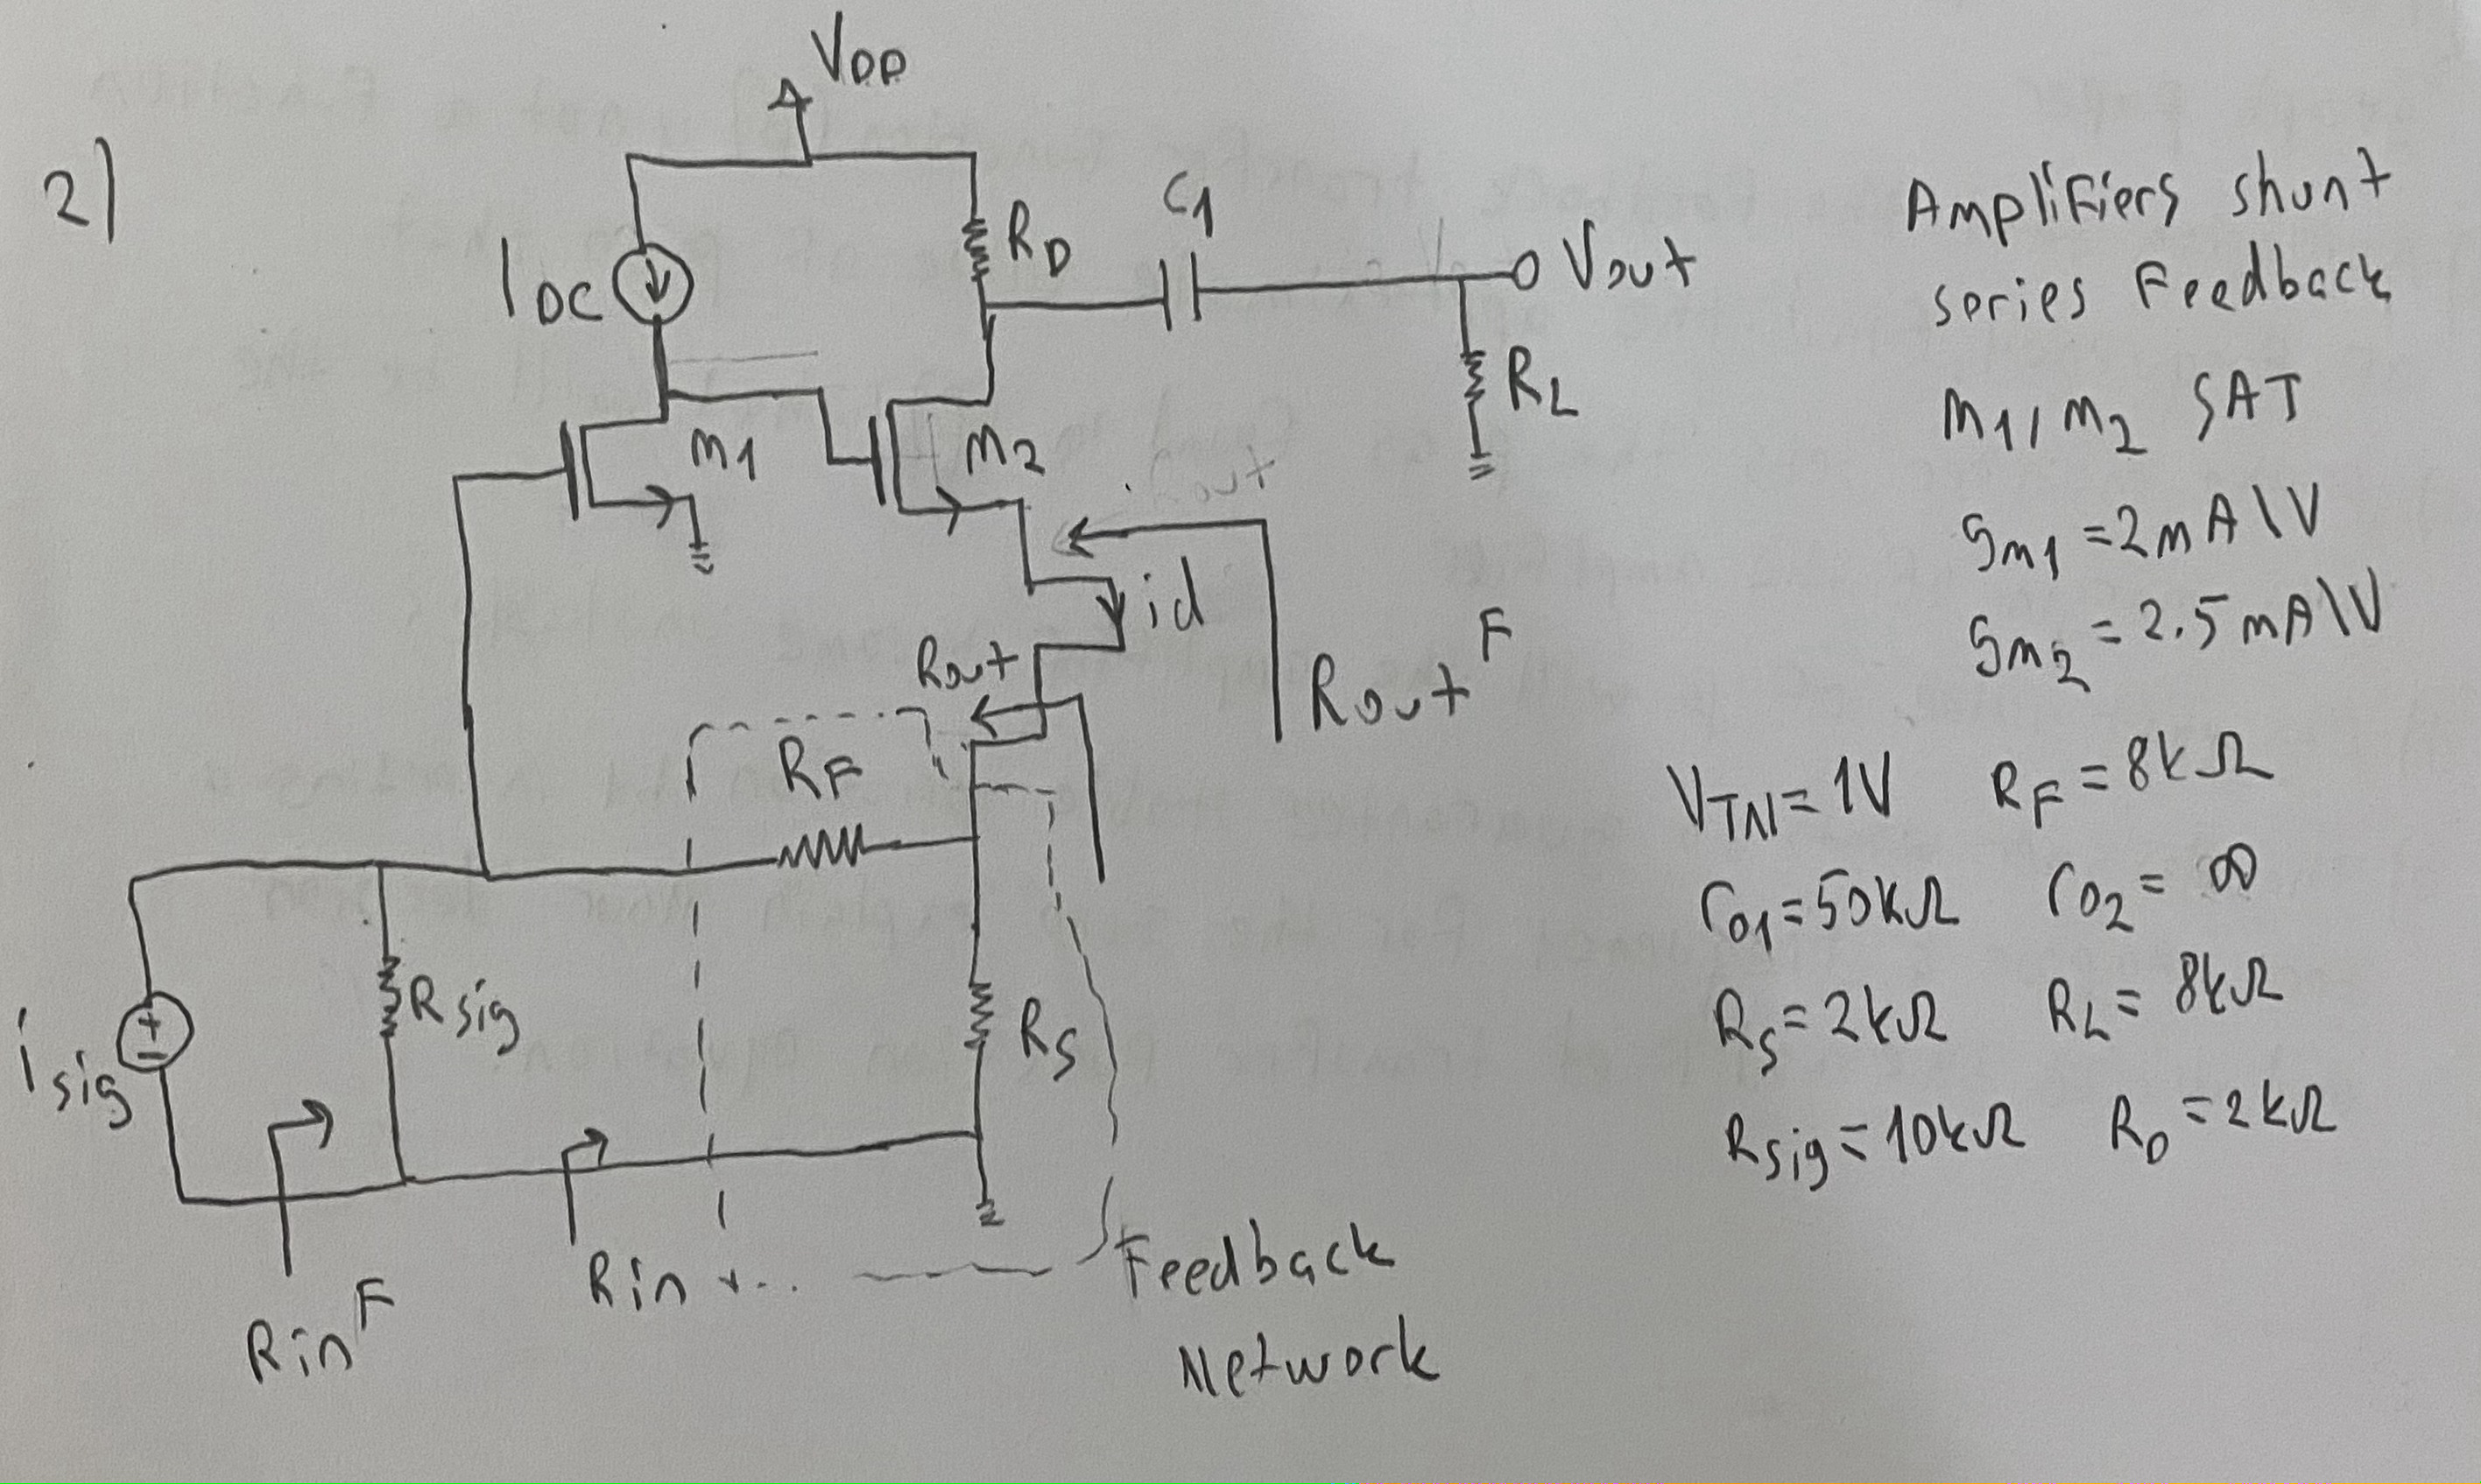 2)
VDD
IDC
RD
C1
Vout
RL
M1
M2
id
Rout
RoutF
RF
isig
Rsig
RS
RinF
Rin
Feedback
Network
Amplifiers shunt
series Feedback
M1, M2 SAT
gm1 = 2mA\V
gm2 = 2.5mA\V
VTN = 1V RF = 8kΩ
ro1 = 50kΩ ro2 = ∞
RS = 2kΩ RL = 8kΩ
Rsig = 10kΩ RD = 2kΩ